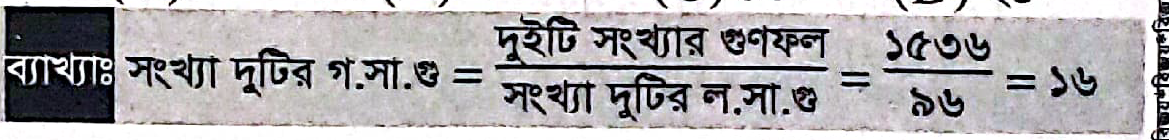 ব্যাখ্যাঃ সংখ্যা দুটির গ.সা.গু = দুইটি সংখ্যার গুণফল / সংখ্যা দুটির ল.সা.গু = ১৫৩৬ / ৯৬ = ১৬